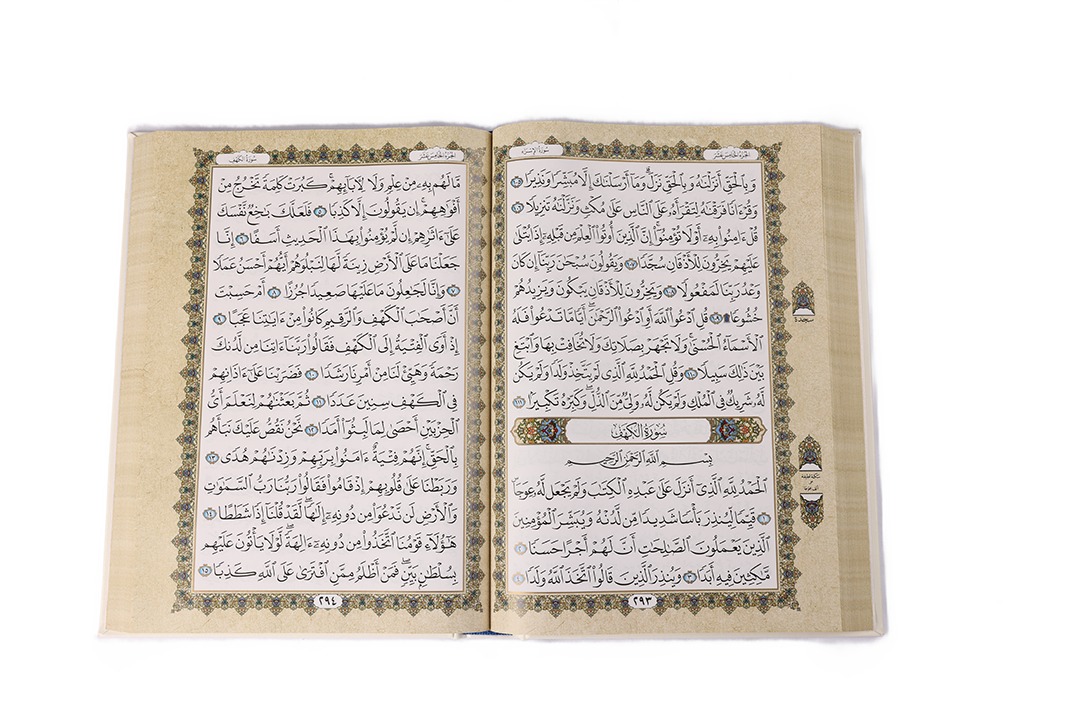 الجزء الخامس عشر
سورة الإسراء
وَبِالْحَقِّ أَنزَلْنَٰهُ وَبِالْحَقِّ نَزَلَ ۗ وَمَآ أَرْسَلْنَٰكَ إِلَّا مُبَشِّرًا وَنَذِيرًا ١٠٥
وَقُرْءَانًا فَرَقْنَٰهُ لِتَقْرَأَهُۥ عَلَى النَّاسِ عَلَىٰ مُكْثٍ وَنَزَّلْنَٰهُ تَنزِيلًا ١٠٦
قُلْ ءَامِنُوا بِهِۦٓ أَوْ لَا تُؤْمِنُوٓا ۚ إِنَّ الَّذِينَ أُوتُوا الْعِلْمَ مِن قَبْلِهِۦٓ إِذَا يُتْلَىٰ
عَلَيْهِمْ يَخِرُّونَ لِلْأَذْقَانِ سُجَّدًا ١٠٧ وَيَقُولُونَ سُبْحَٰنَ رَبِّنَآ إِن كَانَ
وَعْدُ رَبِّنَا لَمَفْعُولًا ١٠٨ وَيَخِرُّونَ لِلْأَذْقَانِ يَبْكُونَ وَيَزِيدُهُمْ
خُشُوعًا ۩ ١٠٩ قُلِ ادْعُوا اللَّهَ أَوِ ادْعُوا الرَّحْمَٰنَ ۖ أَيًّا مَّا تَدْعُوا فَلَهُ
الْأَسْمَآءُ الْحُسْنَىٰ ۚ وَلَا تَجْهَرْ بِصَلَاتِكَ وَلَا تُخَافِتْ بِهَا وَابْتَغِ
بَيْنَ ذَٰلِكَ سَبِيلًا ١١٠ وَقُلِ الْحَمْدُ لِلَّهِ الَّذِى لَمْ يَتَّخِذْ وَلَدًا وَلَمْ يَكُن
لَّهُۥ شَرِيكٌ فِى الْمُلْكِ وَلَمْ يَكُن لَّهُۥ وَلِىٌّ مِّنَ الذُّلِّ ۖ وَكَبِّرْهُ تَكْبِيرًا ١١١
سُورَةُ الْكَهْفِ
بِسْمِ اللَّهِ الرَّحْمَٰنِ الرَّحِيمِ
الْحَمْدُ لِلَّهِ الَّذِىٓ أَنزَلَ عَلَىٰ عَبْدِهِ الْكِتَٰبَ وَلَمْ يَجْعَل لَّهُۥ عِوَجَا ۜ
١ قَيِّمًا لِّيُنذِرَ بَأْسًا شَدِيدًا مِّن لَّدُنْهُ وَيُبَشِّرَ الْمُؤْمِنِينَ
الَّذِينَ يَعْمَلُونَ الصَّٰلِحَٰتِ أَنَّ لَهُمْ أَجْرًا حَسَنًا ٢
مَّٰكِثِينَ فِيهِ أَبَدًا ٣ وَيُنذِرَ الَّذِينَ قَالُوا اتَّخَذَ اللَّهُ وَلَدًا ٤
٢٩٣
سجدة
الجزء الخامس عشر
سورة الكهف
مَّا لَهُم بِهِۦ مِنْ عِلْمٍ وَلَا لِءَابَآئِهِمْ ۚ كَبُرَتْ كَلِمَةً تَخْرُجُ مِنْ
أَفْوَٰهِهِمْ ۚ إِن يَقُولُونَ إِلَّا كَذِبًا ٥ فَلَعَلَّكَ بَٰخِعٌ نَّفْسَكَ
عَلَىٰٓ ءَاثَٰرِهِمْ إِن لَّمْ يُؤْمِنُوا بِهَٰذَا الْحَدِيثِ أَسَفًا ٦ إِنَّا
جَعَلْنَا مَا عَلَى الْأَرْضِ زِينَةً لَّهَا لِنَبْلُوَهُمْ أَيُّهُمْ أَحْسَنُ عَمَلًا
٧ وَإِنَّا لَجَٰعِلُونَ مَا عَلَيْهَا صَعِيدًا جُرُزًا ٨ أَمْ حَسِبْتَ
أَنَّ أَصْحَٰبَ الْكَهْفِ وَالرَّقِيمِ كَانُوا مِنْ ءَايَٰتِنَا عَجَبًا ٩
إِذْ أَوَى الْفِتْيَةُ إِلَى الْكَهْفِ فَقَالُوا رَبَّنَآ ءَاتِنَا مِن لَّدُنكَ
رَحْمَةً وَهَيِّئْ لَنَا مِنْ أَمْرِنَا رَشَدًا ١٠ فَضَرَبْنَا عَلَىٰٓ ءَاذَانِهِمْ
فِى الْكَهْفِ سِنِينَ عَدَدًا ١١ ثُمَّ بَعَثْنَٰهُمْ لِنَعْلَمَ أَىُّ
الْحِزْبَيْنِ أَحْصَىٰ لِمَا لَبِثُوٓا أَمَدًا ١٢ نَّحْنُ نَقُصُّ عَلَيْكَ نَبَأَهُم
بِالْحَقِّ ۚ إِنَّهُمْ فِتْيَةٌ ءَامَنُوا بِرَبِّهِمْ وَزِدْنَٰهُمْ هُدًى ١٣
وَرَبَطْنَا عَلَىٰ قُلُوبِهِمْ إِذْ قَامُوا فَقَالُوا رَبُّنَا رَبُّ السَّمَٰوَٰتِ
وَالْأَرْضِ لَن نَّدْعُوَا مِن دُونِهِۦٓ إِلَٰهًا ۖ لَّقَدْ قُلْنَآ إِذًا شَطَطًا ١٤
هَٰٓؤُلَآءِ قَوْمُنَا اتَّخَذُوا مِن دُونِهِۦٓ ءَالِهَةً ۖ لَّوْلَا يَأْتُونَ عَلَيْهِم
بِسُلْطَٰنٍۭ بَيِّنٍ ۖ فَمَنْ أَظْلَمُ مِمَّنِ افْتَرَىٰ عَلَى اللَّهِ كَذِبًا ١٥
٢٩٤